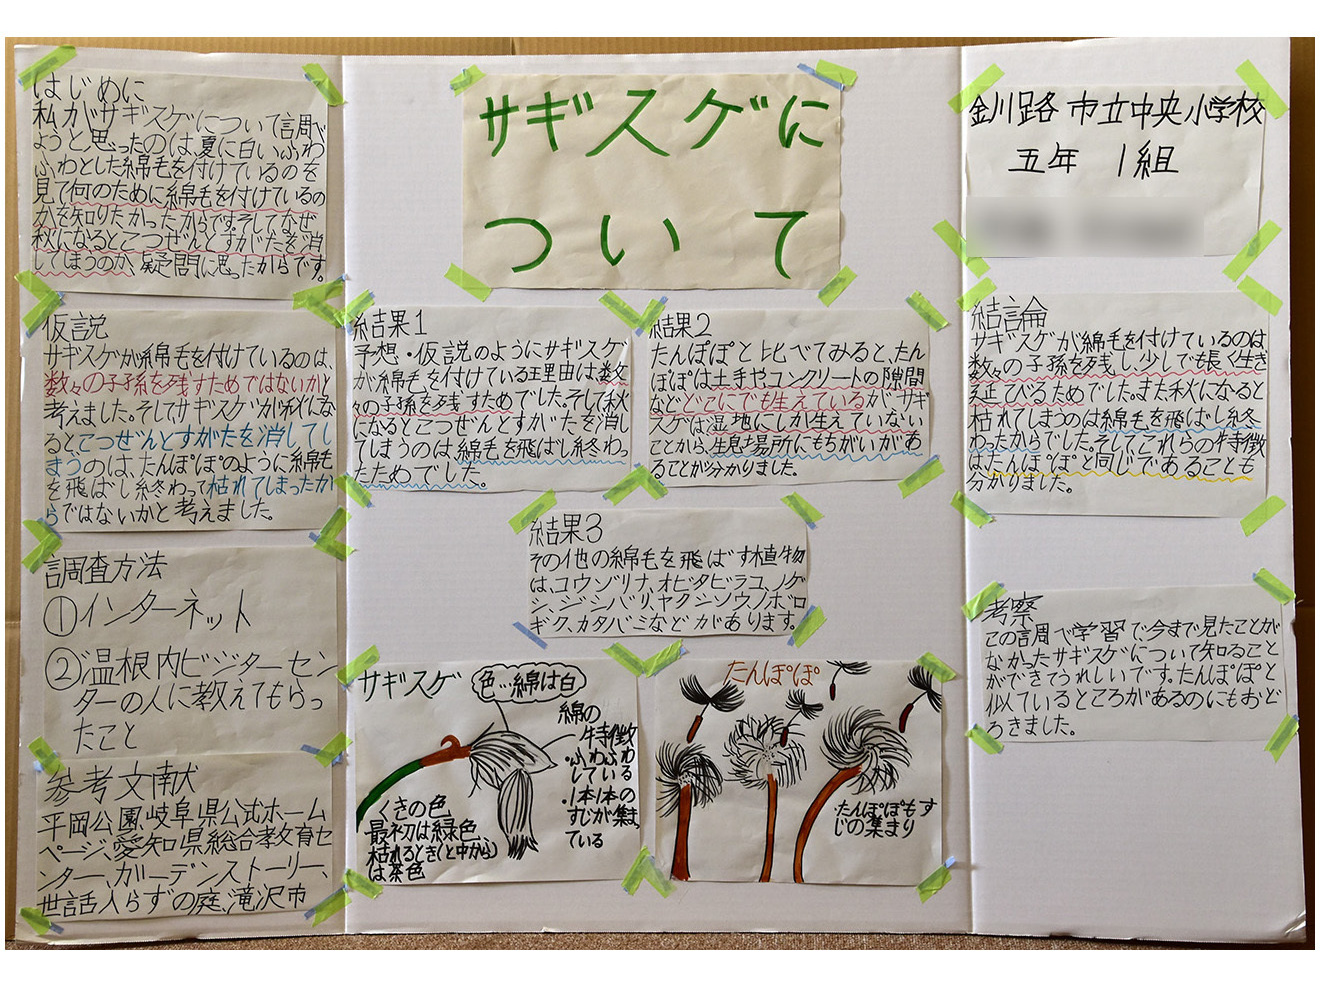 はじめに
私がサギスケについて調べ
ようと思ったのは、夏に白いふわ
ふわとした綿毛を付けているのを
見て何のために綿毛を付けているの
かを知りたかったからです。そしてなぜ
秋になるとこつぜんとすがたを消
してしまうのか、疑問に思ったからです。
仮説
サギスゲが綿毛を付けているのは、
数々の子孫を残すためではないかと
考えました。そしてサギスゲが秋にな
るとこつぜんとすがたを消してし
まうのは、たんぽぽのように綿毛
を飛ばし終わって枯れてしまったか
らではないかと考えました。
調査方法
①インターネット
②温根内ビジターセン
ターの人に教えてもらっ
たこと
参考文献
平岡公園岐阜県公式ホーム
ページ、愛知県総合教育セ
ンター、ガーデンストーリー、
世話入らずの庭、滝沢市
サギスゲに
ついて
結果1
予想・仮説のようにサギスゲ
が綿毛を付けている理由は数
々の子孫を残すためでした。そして秋
になるとこつぜんとすがたを消し
てしまうのは綿毛を飛ばし終わっ
たためでした。
結果2
たんぽぽと比べてみると、たん
ぽぽは土手やコンクリートの隙間
などどこにでも生えているがサギ
スゲは湿地にしか生えていない
ことから、生息場所にもちがいがあ
ることが分かりました。
結果3
その他の綿毛を飛ばす植物
は、コウゾリナ、オビタビラコ、ノゲ
シ、ジシバリ、ヤクシソウ、ノボロ
ギク、カタバミなどがあります。
サギスゲ
色…綿は白
綿の
特徴
・ふわふわ
している
・1本1本の
すじが集まっ
ている
くきの色
最初は緑色
枯れるとき(と中から)
は茶色
たんぽぽ
・たんぽぽもす
じの集まり
釧路市立中央小学校
五年 1組
結論
サギスゲが綿毛を付けているのは
数々の子孫を残し、少しでも長く生き
延びるためでした。また秋になると
枯れてしまうのは綿毛を飛ばし終
わったからでした。そしてこれらの特徴
はたんぽぽと同じであることも
分かりました。
考察
この調べ学習で今まで見たことが
なかったサギスゲについて知ること
ができてうれしいです。たんぽぽと
似ているところがあるのにもおど
ろきました。